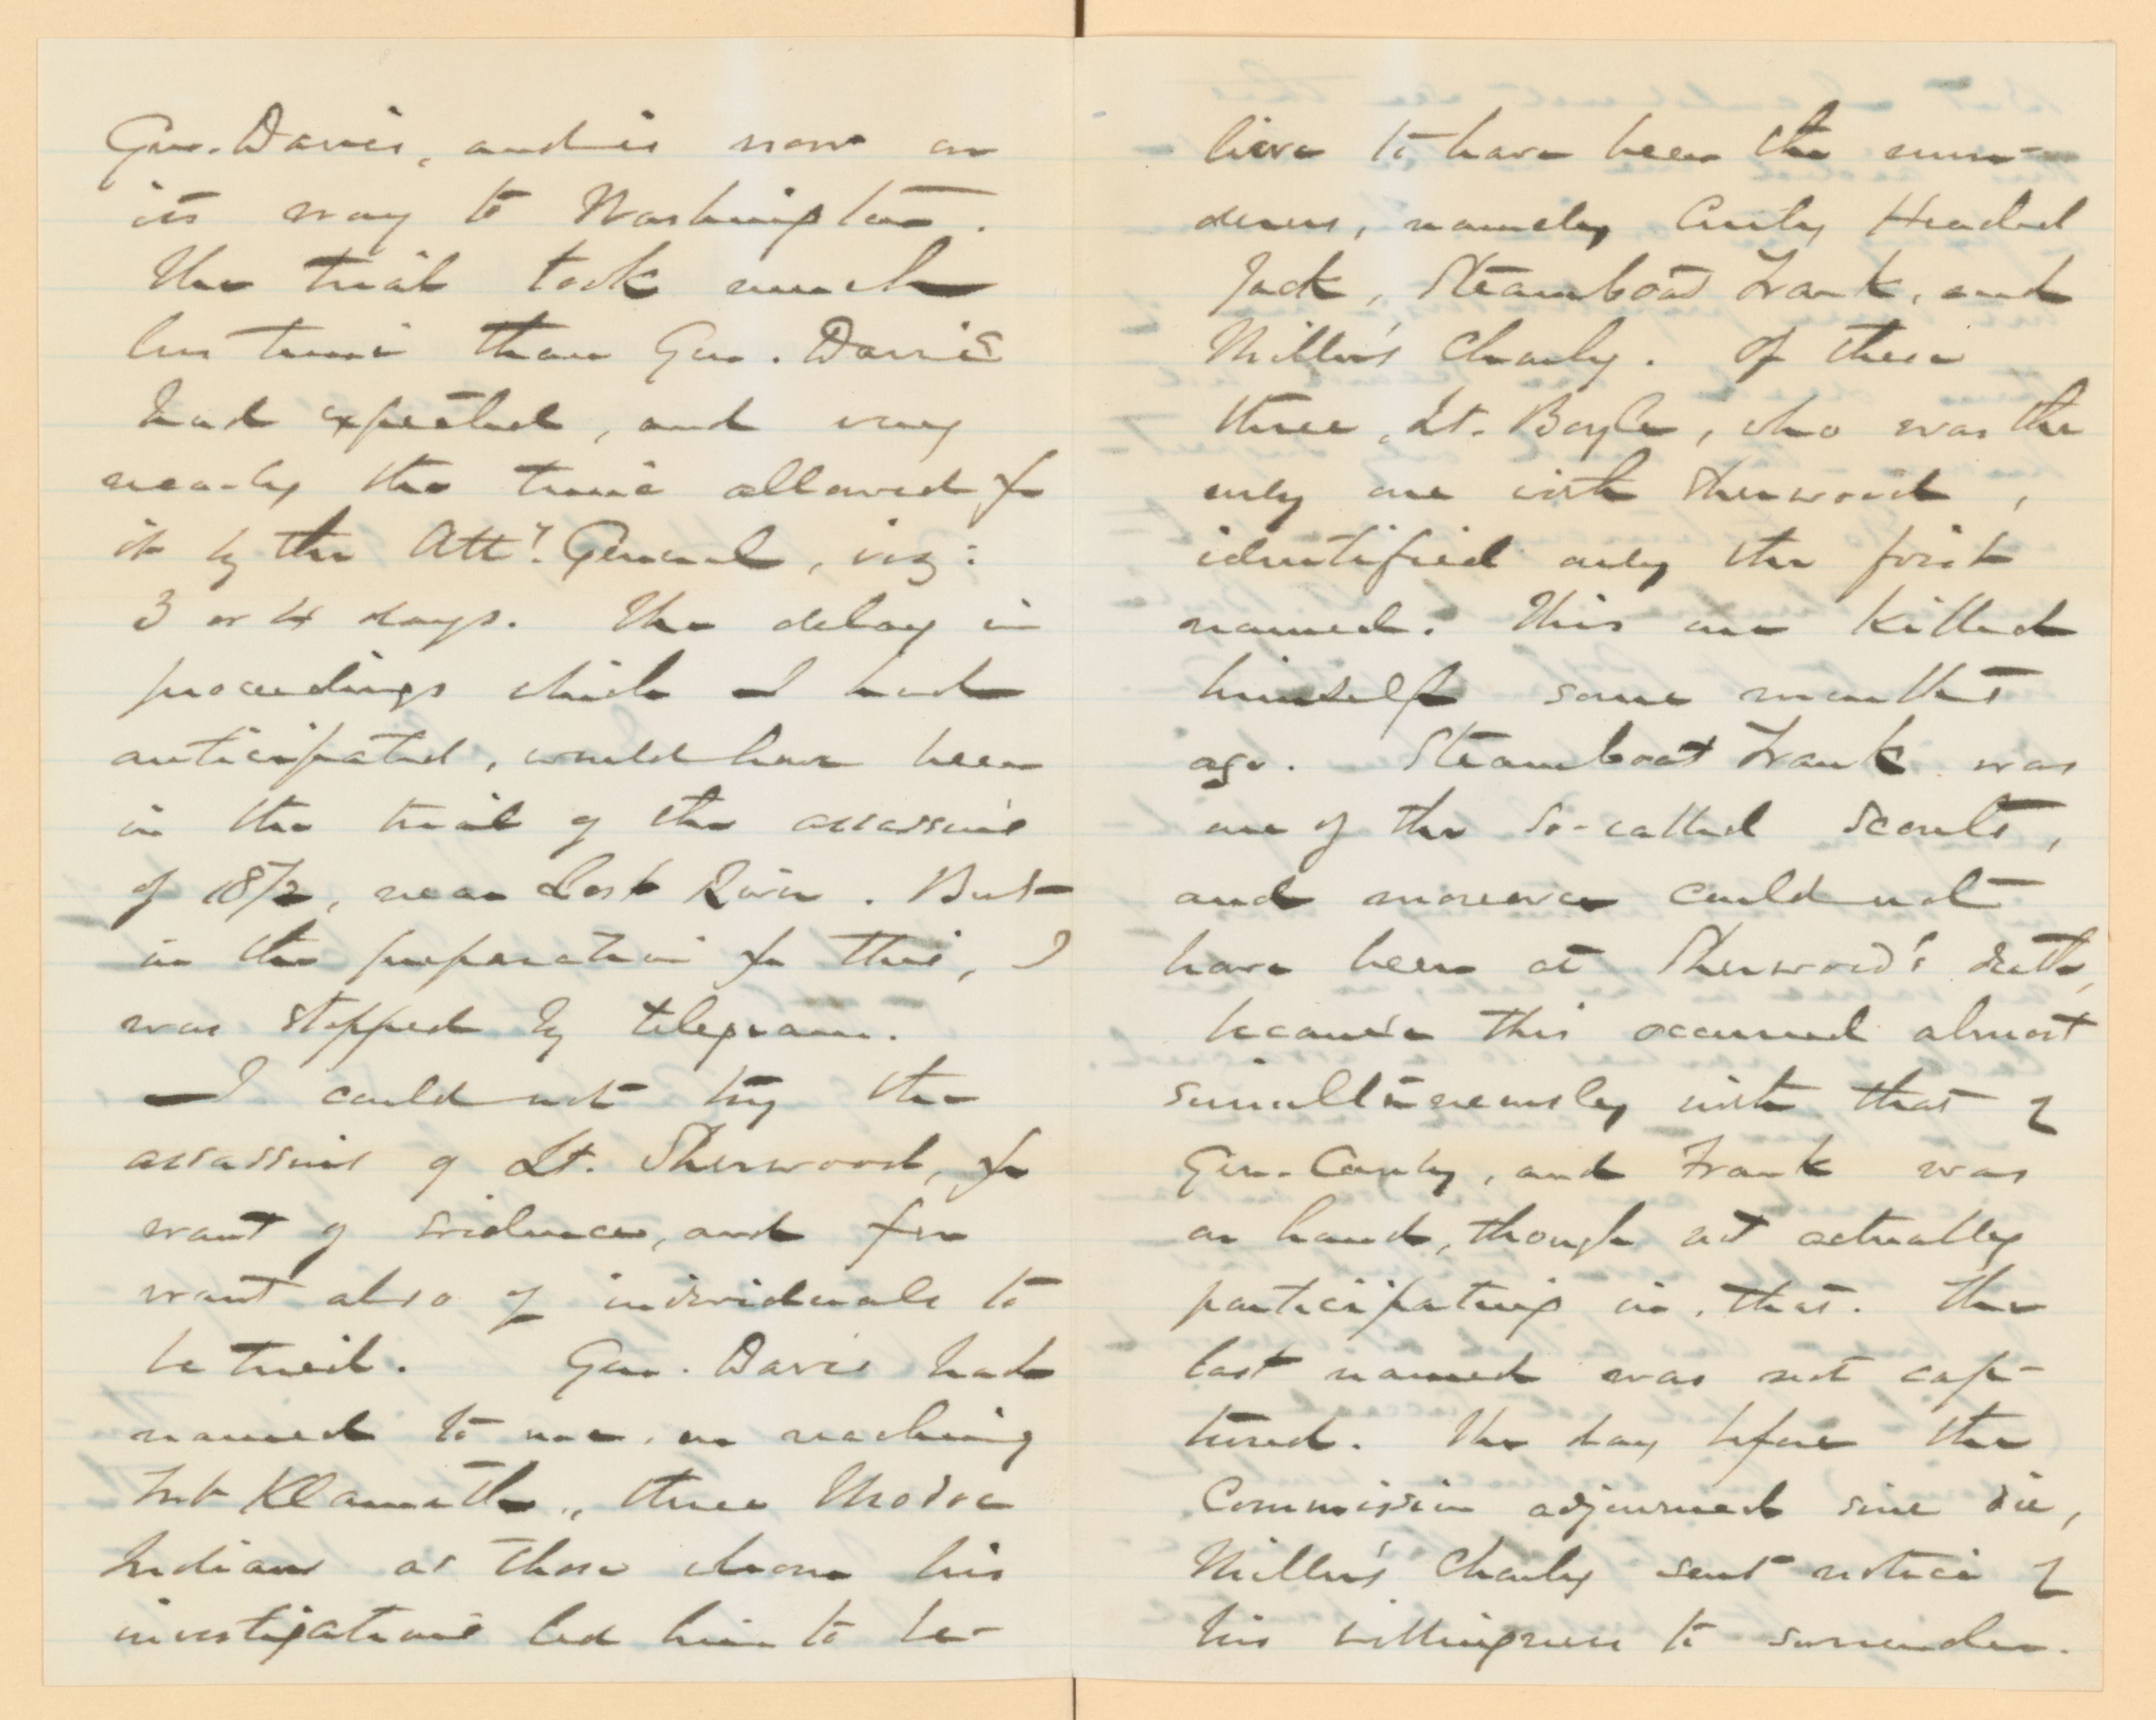 Gen. Davis, and is now on
its way to Washington.
The trial took much
less time than Gen. Davis
had expected, and very
nearly the time allowed for
it by the Atty. General, viz:
3 or 4 days. The delay in
proceedings which I had
anticipated, would have been
in the trial of the assassins
of 1872, near Lost River. But
in the preparation for this, I
was stopped by telegram.
I could not try the
assassins of Lt. Sherwood, for
want of evidence, and for
want also of individuals to
be tried. Gen. Davis had
named to me, on reaching
Fort Klamath, three Modoc
Indians as those whom his
investigations led him to be-
lieve to have been the mur-
derers, namely Curly Headed
Jack, Steamboat Frank, and
Miller's Charly. Of these
three, Lt. Boyle, who was the
only one with Sherwood,
identified only the first
named. This one killed
himself some months
ago. Steamboat Frank was
one of the so-called scouts,
and moreover could not
have been at Sherwood's death,
because this occurred almost
simultaneously with that of
Gen. Canby, and Frank was
on hand, though not actually
participating in, that. The
last named was not cap-
tured. The day before the
Commission adjourned sine die,
Miller's Charly sent notice of
his willingness to surrender.